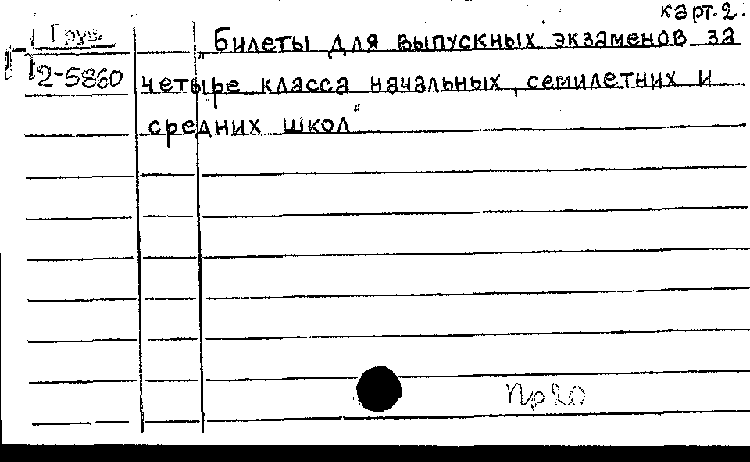 карт. 2.
Груз.
„Билеты для выпускных экзаменов за
2-5860
четыре класса начальных, семилетних и
средних школ"